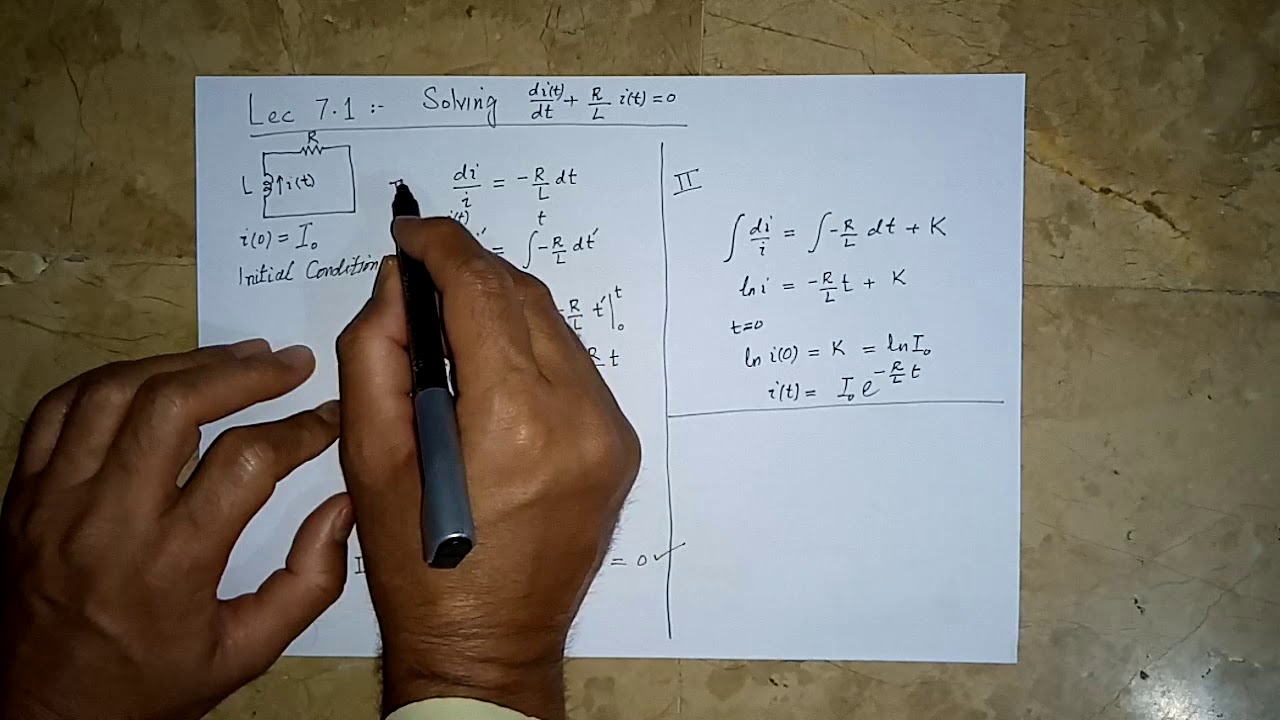 Lec 7.1 :- Solving di(t)/dt + R/L i(t) = 0
R
L i(t)
i(0) = I₀
Initial Condition
di/i = -R/L dt
i(t) t
= ∫ -R/L dt′
-R/L t′ |₀ᵗ
t
= 0 ✓
II
∫ di/i = ∫ -R/L dt + K
ln i = -R/L t + K
t=0
ln i(0) = K = ln I₀
i(t) = I₀ e^(-R/L t)